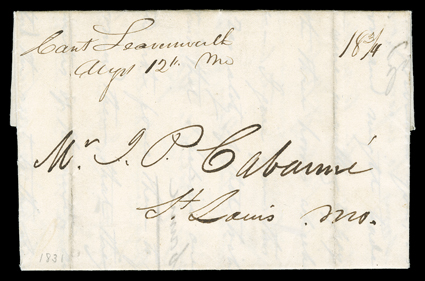 Cant Leavenworth
Augt 12th Mo
18 3/4
Mr. J. P. Cabanné
St. Louis Mo.
1831